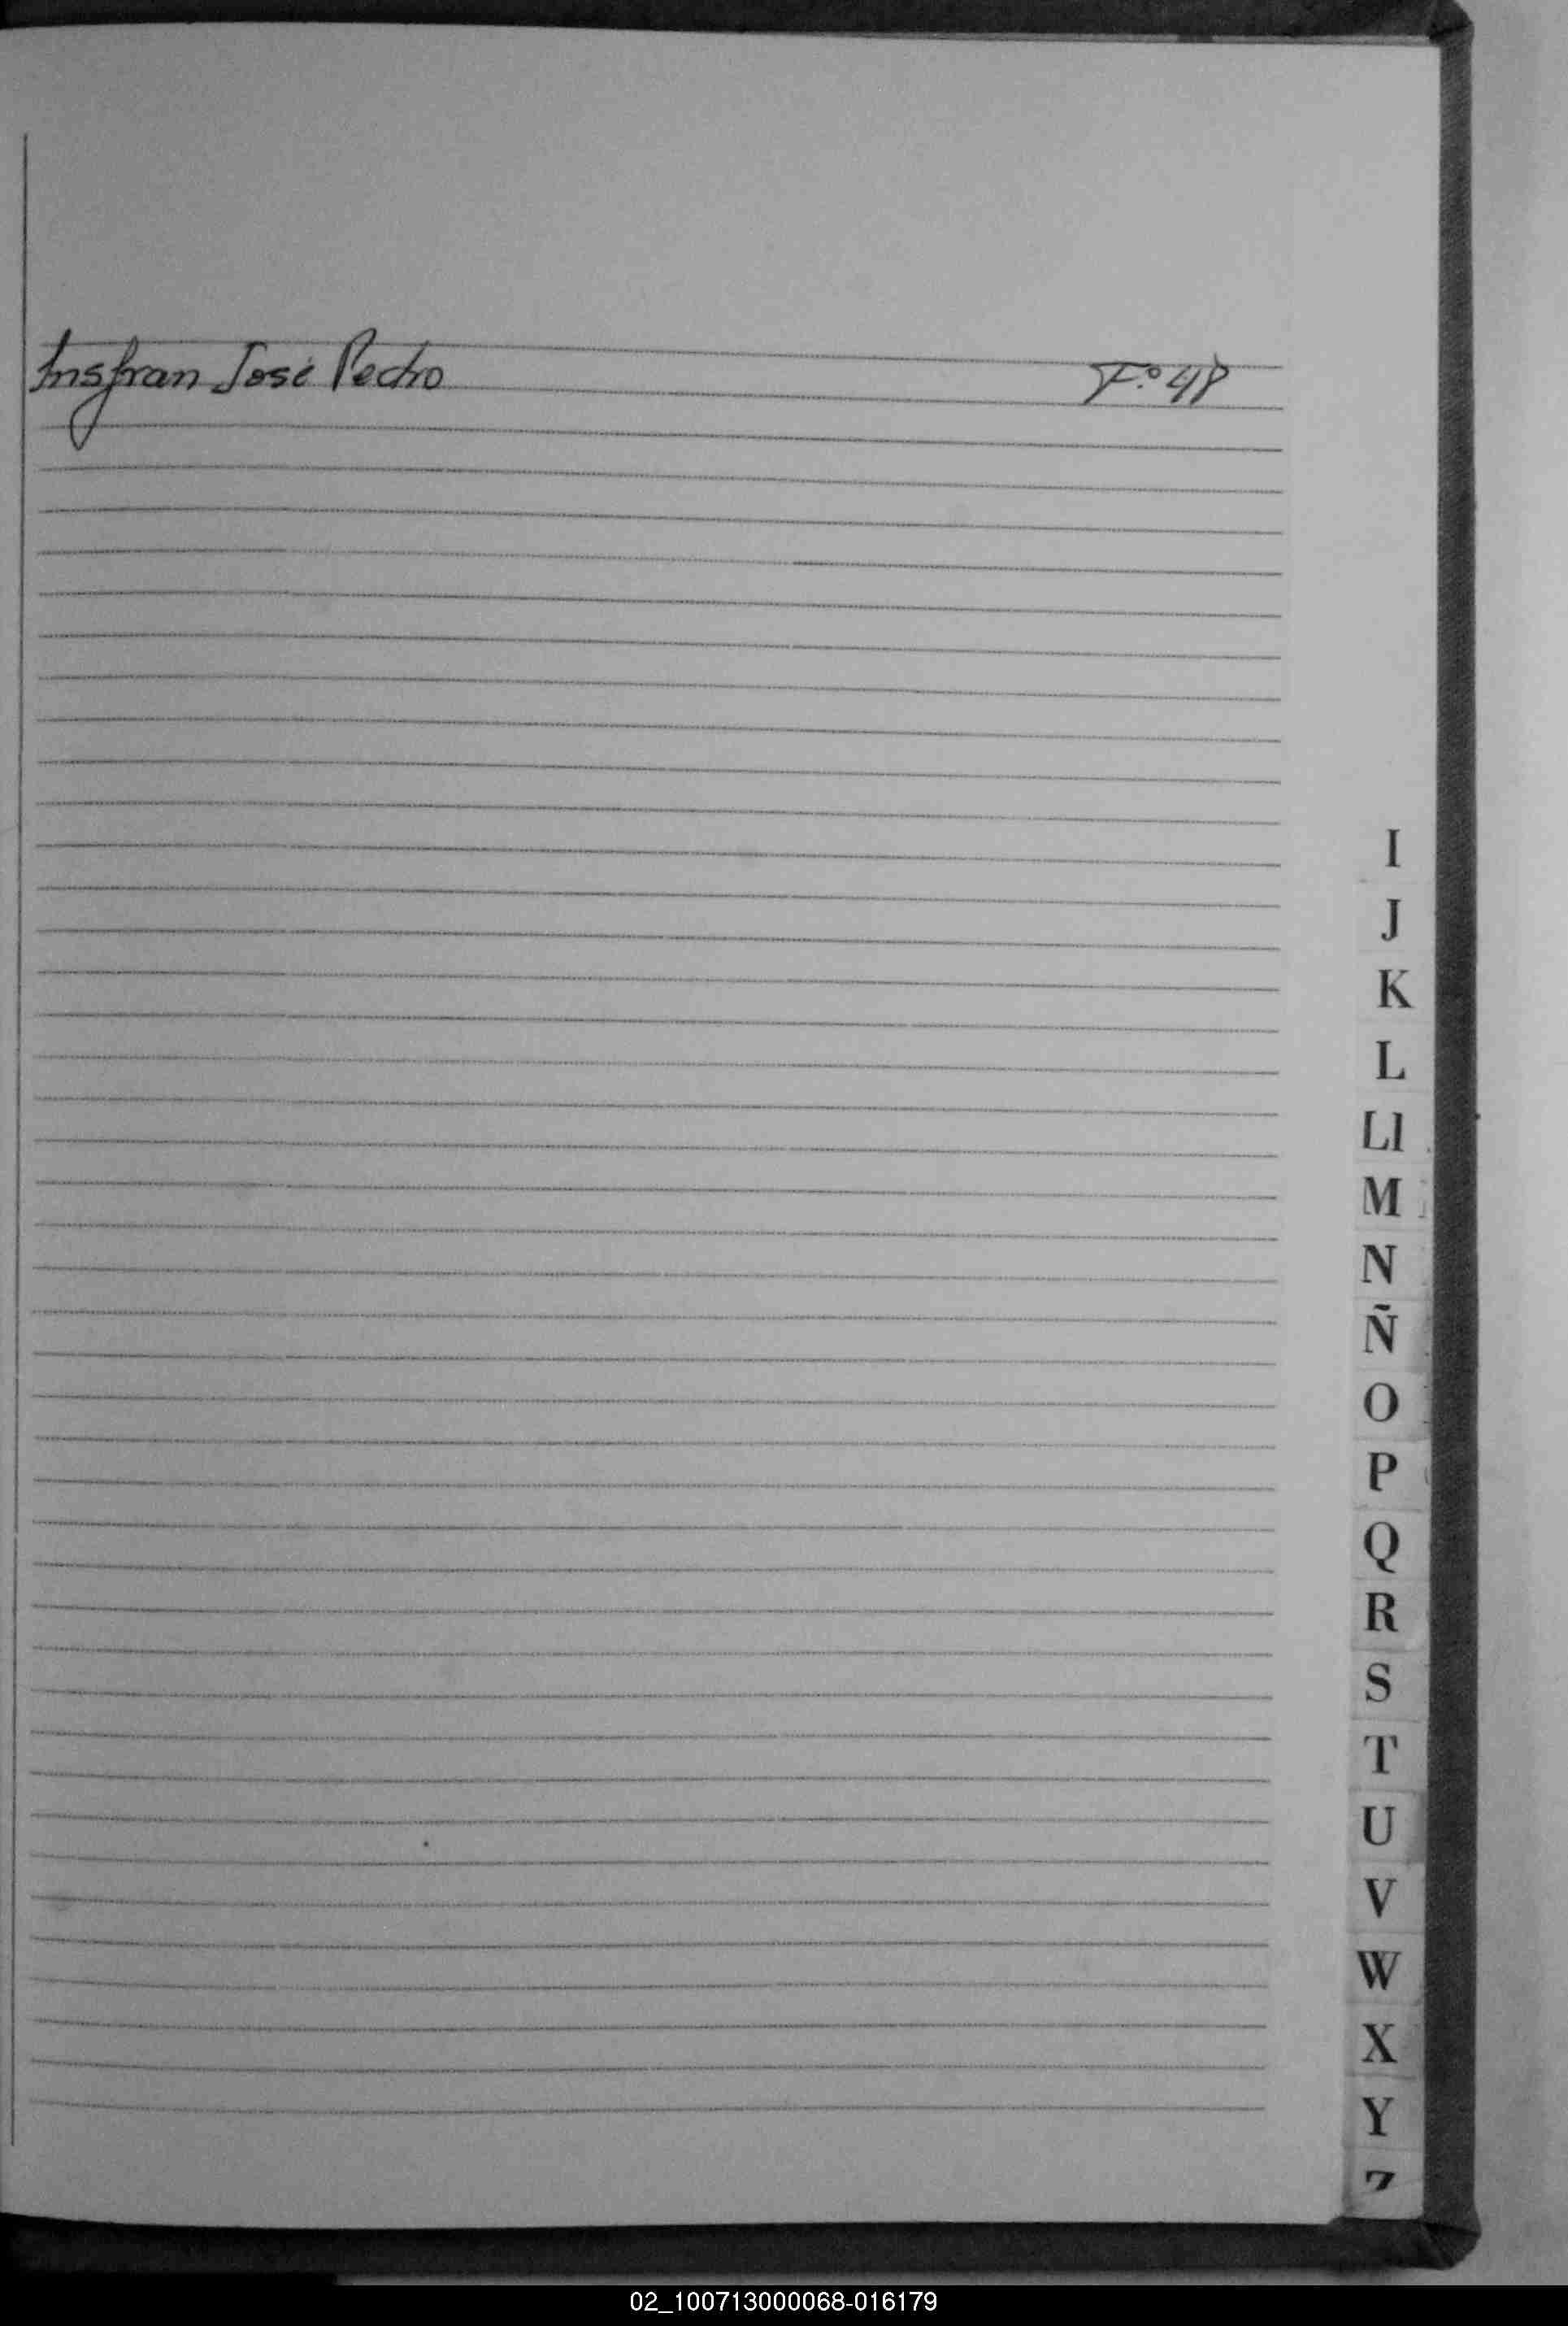 Insfran José Pedro Fº 48
I
J
K
L
Ll
M
N
Ñ
O
P
Q
R
S
T
U
V
W
X
Y
Z
02_100713000068-016179